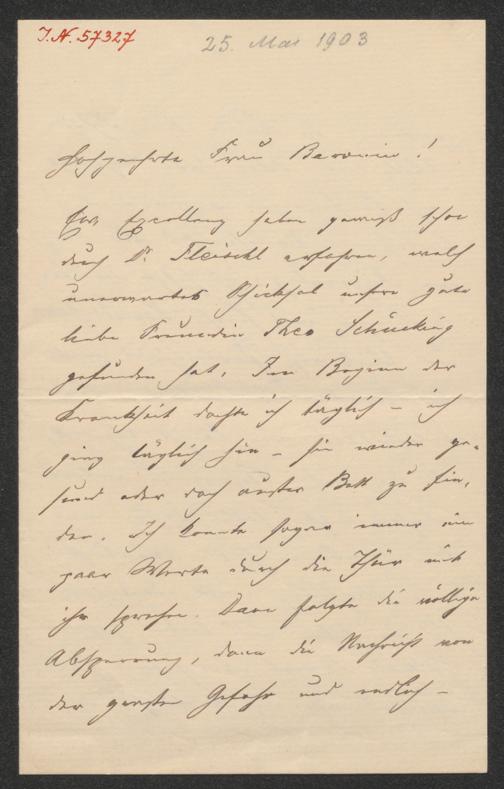 I.N. 57327
25. Mai 1903
Hochgeehrte Frau Baronin!
Eur Excellenz haben gewiß schon
durch Dr. Fleischl erfahren, welch
unerwartetes Schicksal unsere gute
liebe Freundin Theo Schücking
gefunden hat. Im Beginn der
Krankheit dachte ich täglich – ich
ging täglich hin – sie wieder ge-
sund oder doch außer Bett zu fin-
den. Ich konnte sogar immer ein
paar Worte durch die Thür mit
ihr sprechen. Dann folgte die völlige
Absperrung, dann die Nachricht von
der großen Gefahr und endlich –